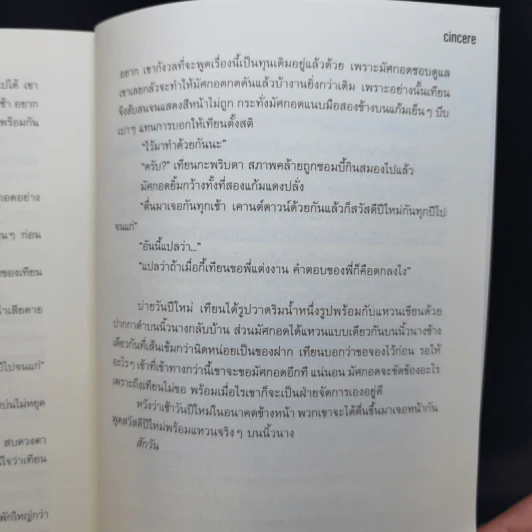 ปได้ เขา
ช้า อยาก
พร้อมกัน
กอดอย่าง
นๆ ก่อน
ของเทียน
ำเสียดาย
ปีไปจนแก่"
บ่นไม่หยุด
สบดวงตา
นใจว่าเทียน
พักใหญ่กว่า
cincere
อยาก เขากังวลที่จะพูดเรื่องนี้เป็นทุนเดิมอยู่แล้วด้วย เพราะมัศกอดชอบดูแล
เขาเลยกลัวจะทำให้มัศกอดกดดันแล้วบ้างานยิ่งกว่าเดิม เพราะอย่างนั้นเทียน
จึงสับสนจนแสดงสีหน้าไม่ถูก กระทั่งมัศกอดแนบมือสองข้างบนแก้มเย็นๆ บีบ
เบาๆ แทนการบอกให้เทียนตั้งสติ
"ไว้มาทำด้วยกันนะ"
"ครับ?" เทียนกะพริบตา สภาพคล้ายถูกซอมบี้กินสมองไปแล้ว
มัศกอดยิ้มกว้างทั้งที่สองแก้มแดงปลั่ง
"ตื่นมาเจอกันทุกเช้า เคานต์ดาวน์ด้วยกันแล้วก็สวัสดีปีใหม่กันทุกปีไป
จนแก่"
"อันนี้แปลว่า..."
"แปลว่าถ้าเมื่อกี้เทียนขอพี่แต่งงาน คำตอบของพี่ก็คือตกลงไง"
บ่ายวันปีใหม่ เทียนได้รูปวาดริมน้ำหนึ่งรูปพร้อมกับแหวนเขียนด้วย
ปากกาดำบนนิ้วนางกลับบ้าน ส่วนมัศกอดได้แหวนแบบเดียวกันบนนิ้วนางข้าง
เดียวกันที่เส้นเข้มกว่านิดหน่อยเป็นของฝาก เทียนบอกว่าขอจองไว้ก่อน รอให้
อะไรๆ เข้าที่เข้าทางกว่านี้เขาจะขอมัศกอดอีกที แน่นอน มัศกอดจะขัดข้องอะไร
เพราะถึงเทียนไม่ขอ พร้อมเมื่อไรเขาก็จะเป็นฝ่ายจัดการเองอยู่ดี
หวังว่าเช้าวันปีใหม่ในอนาคตข้างหน้า พวกเขาจะได้ตื่นขึ้นมาเจอหน้ากัน
พูดสวัสดีปีใหม่พร้อมแหวนจริงๆ บนนิ้วนาง
สักวัน